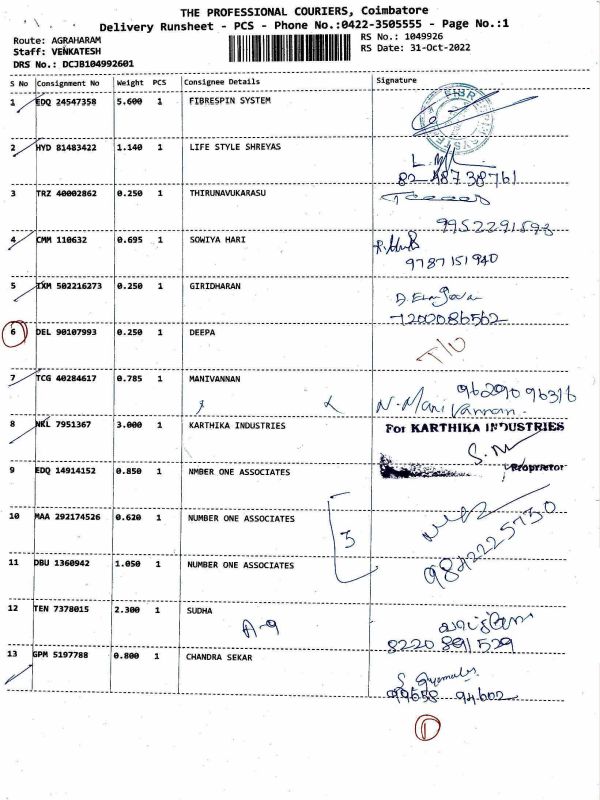 THE PROFESSIONAL COURIERS, Coimbatore
Delivery Runsheet - PCS - Phone No.:0422-3505555 - Page No.:1
Route: AGRAHARAM
Staff: VENKATESH
DRS No.: DCJB104992601
RS No.: 1049926
RS Date: 31-Oct-2022
S No Consignment No Weight PCS Consignee Details Signature
1 EDQ 24547358 5.600 1 FIBRESPIN SYSTEM
2 HYD 81483422 1.140 1 LIFE STYLE SHREYAS
82 48738761
3 TRZ 40002862 0.250 1 THIRUNAVUKARASU
9952291593
4 CMM 110632 0.695 1 SOWIYA HARI
9787151940
5 IXM 502216273 0.250 1 GIRIDHARAN
7200086562
6 DEL 90107993 0.250 1 DEEPA
T/O
7 TCG 40284617 0.785 1 MANIVANNAN
9629096316
N. Manivannan.
8 NKL 7951367 3.000 1 KARTHIKA INDUSTRIES
For KARTHIKA INDUSTRIES
Proprietor
9 EDQ 14914152 0.850 1 NMBER ONE ASSOCIATES
10 MAA 292174526 0.620 1 NUMBER ONE ASSOCIATES
3
9842225730
11 DBU 1360942 1.050 1 NUMBER ONE ASSOCIATES
12 TEN 7378015 2.300 1 SUDHA
A-9
8220891529
13 GPM 5197788 0.800 1 CHANDRA SEKAR
99658 94602
1